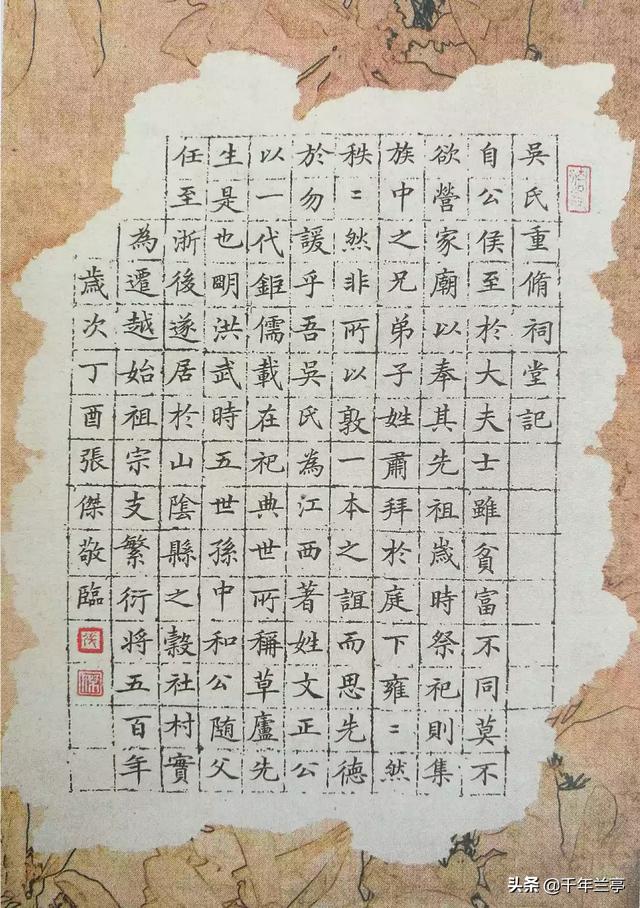 吳氏重脩祠堂記
自公侯至於大夫士雖貧富不同莫不
欲營家廟以奉其先祖歲時祭祀則集
族中之兄弟子姓肅拜於庭下雍〻然
秩〻然非所以敦一本之誼而思先德
於勿諼乎吾吳氏為江西著姓文正公
以一代鉅儒載在祀典世所稱草廬先
生是也明洪武時五世孫中和公随父
任至浙後遂居於山陰縣之縠社村實
為遷越始祖宗支繁衍将五百年
歲次丁酉張傑敬臨
头条 @千年兰亭